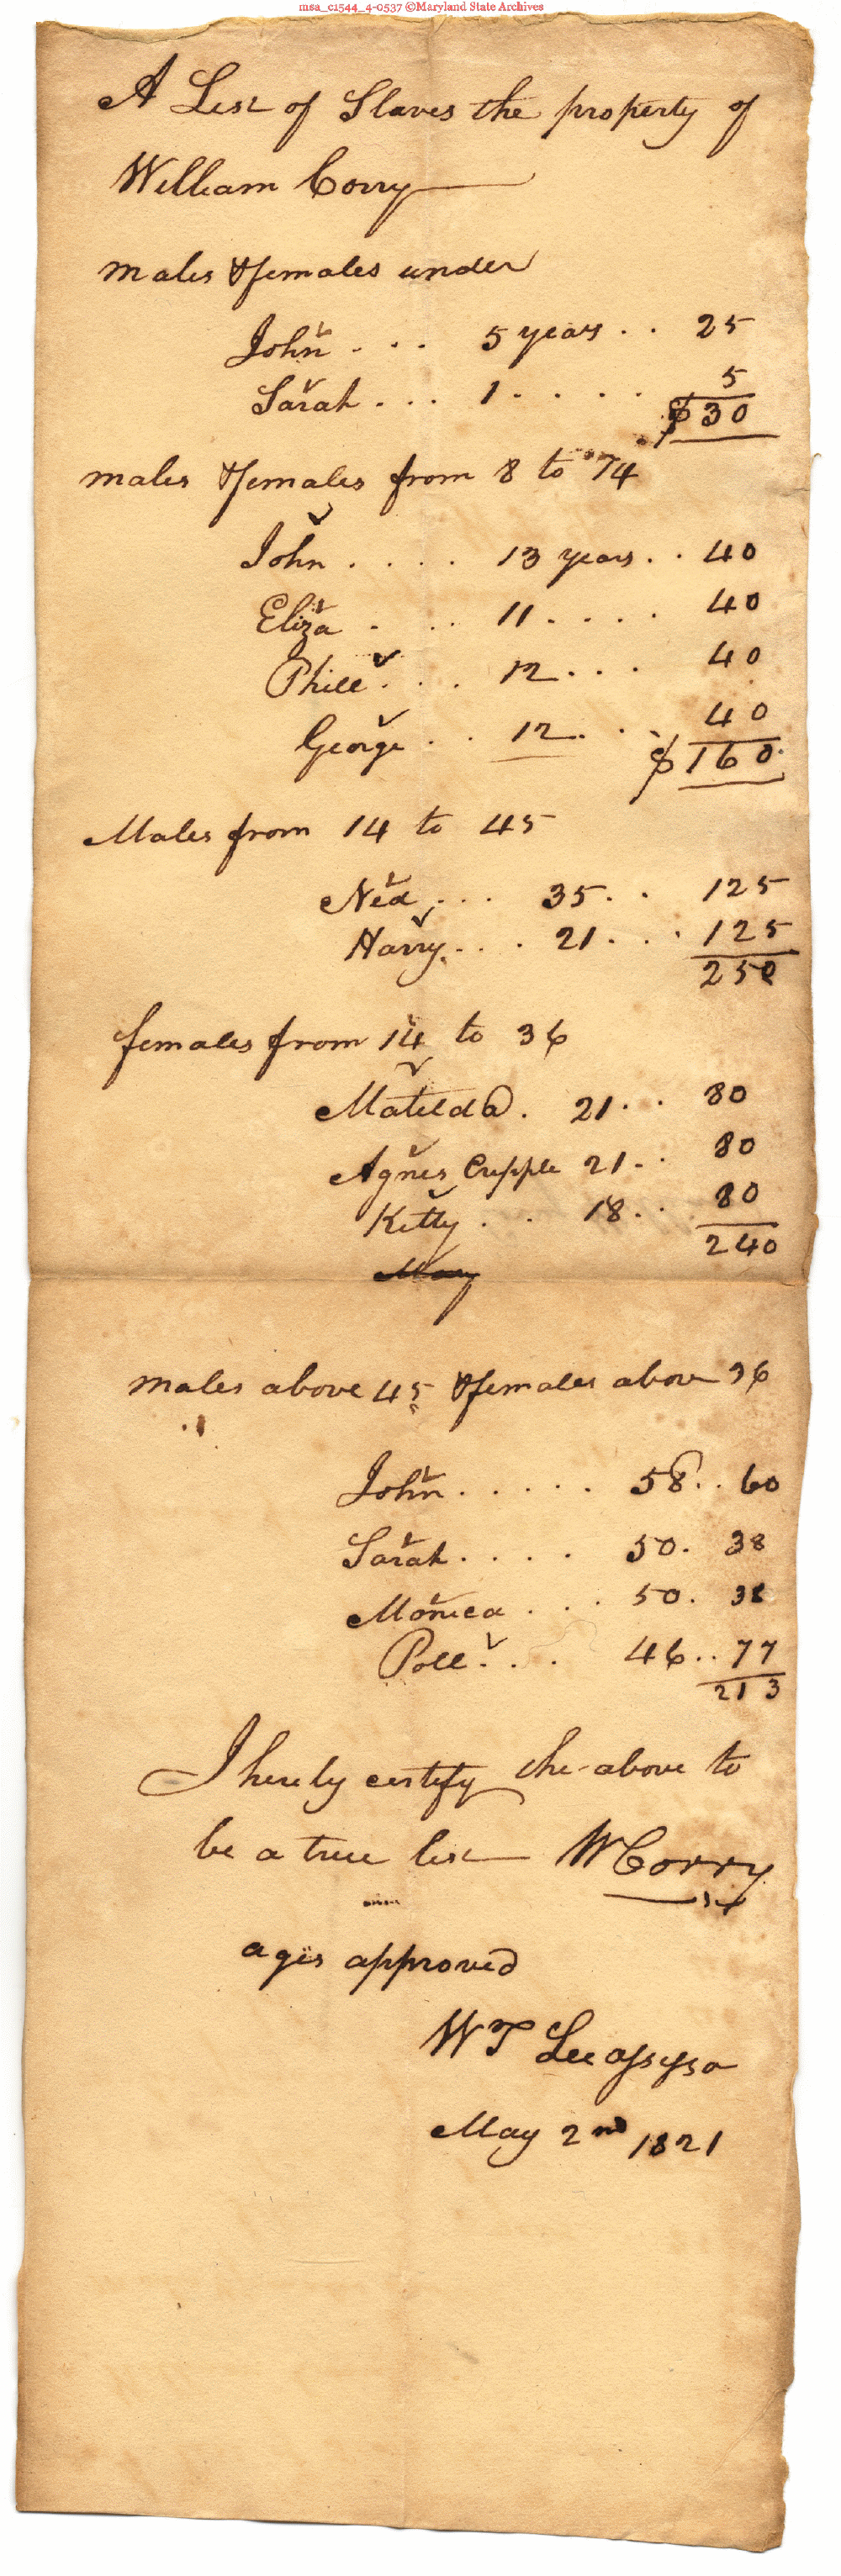 msa_c1544_4-0537 ©Maryland State Archives
A List of Slaves the property of
William Corry
males & females under
John . . . 5 years . . 25
Sarah . . . 1 . . . . 5
$30
males & females from 8 to 14
John . . . . 13 years . . 40
Eliza . . . 11 . . . . 40
Phill . . . 12 . . . 40
George . . 12 . . . 40
$160
Males from 14 to 45
Ned . . . 35 . . 125
Harry . . . 21 . . . 125
250
females from 14 to 36
Matilda . 21 . . 80
Agnes Cripple 21 . . 80
Kitty . . 18 . . 80
240
Mary
males above 45 & females above 36
John . . . . . 58 . . 60
Sarah . . . . 50 . 38
Monica . . . 50 . 38
Poll . . . 46 . . 77
213
I hereby certify the above to
be a true list W Corry
ages approved
W T Lee assessor
May 2nd 1821